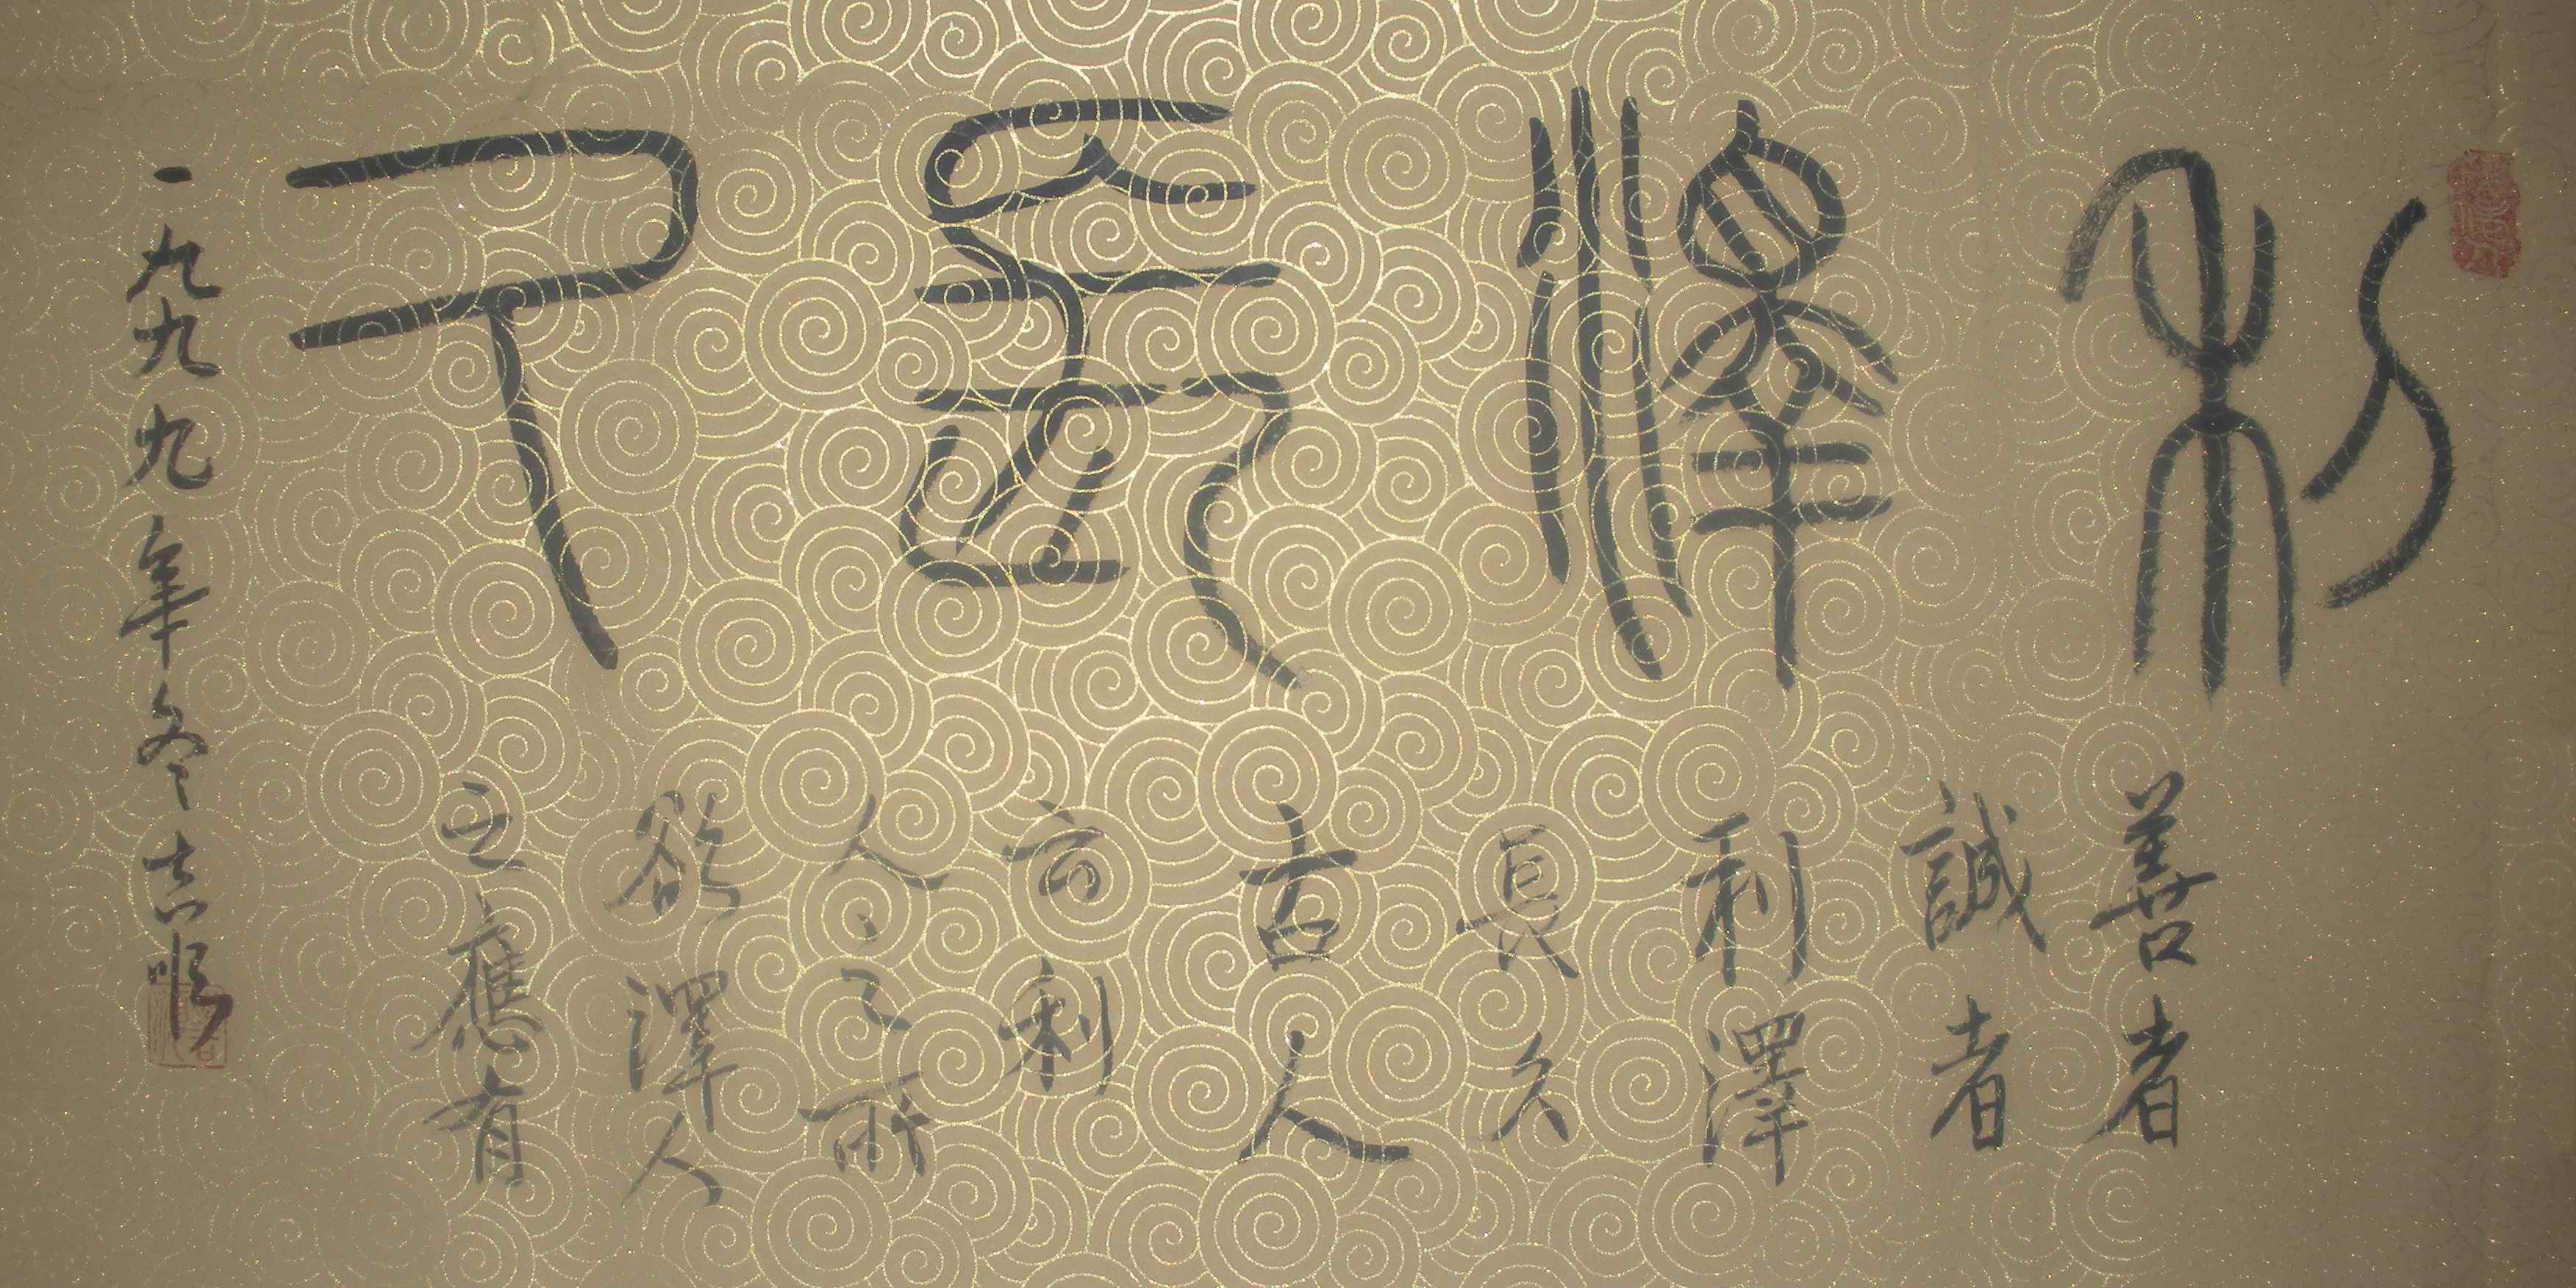 利澤長久
善者
誠者
利澤
長久
古人
言利
人人之所
欲澤人
之應有
一九九九年冬志